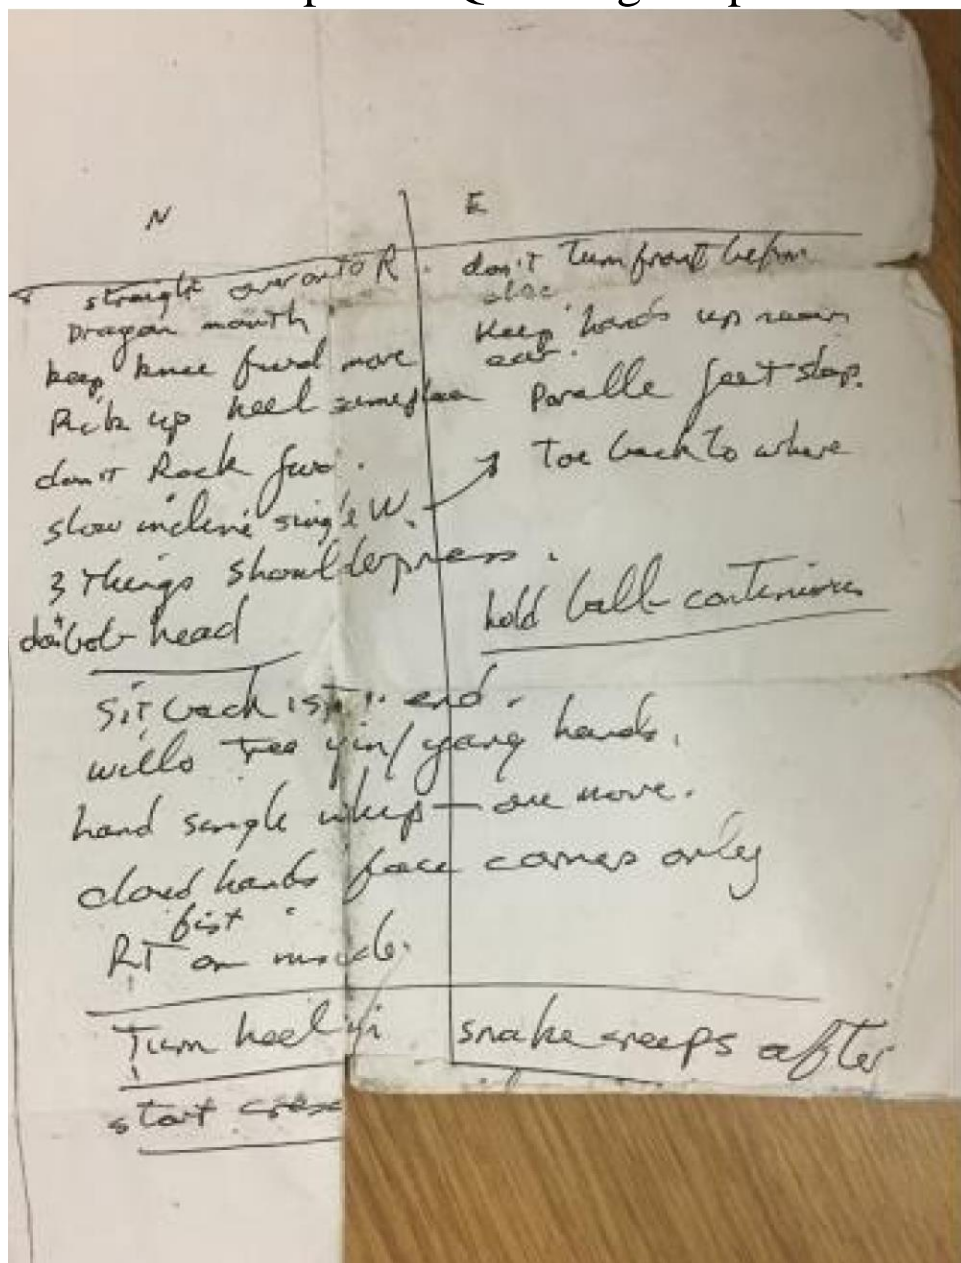 N
straight over onto R.
Dragon mouth
keep knee fwd more
Pick up heel
don't Rock fwd.
slow incline single W.
3 things shoulder press.
don't bob head
E
don't Turn front before
Keep hands up near
ear.
Paralle feet step.
Toe back to where
hold ball continious
Sit back 1st end.
willo Tree yin/yang hands.
hand single whip — one move.
cloud hands face corners only
fist
RT on inside.
Turn heel in
snake creeps after
start